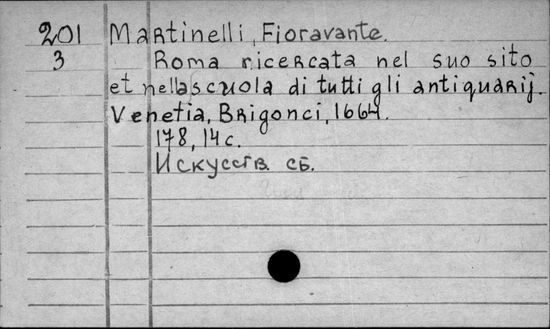 201 Martinelli, Fioravante.
3 Roma ricercata nel suo sito
et nella scuola di tutti gli antiquarij.
Venetia, Brigonci, 1664.
178, 14 c.
Искусств. сб.